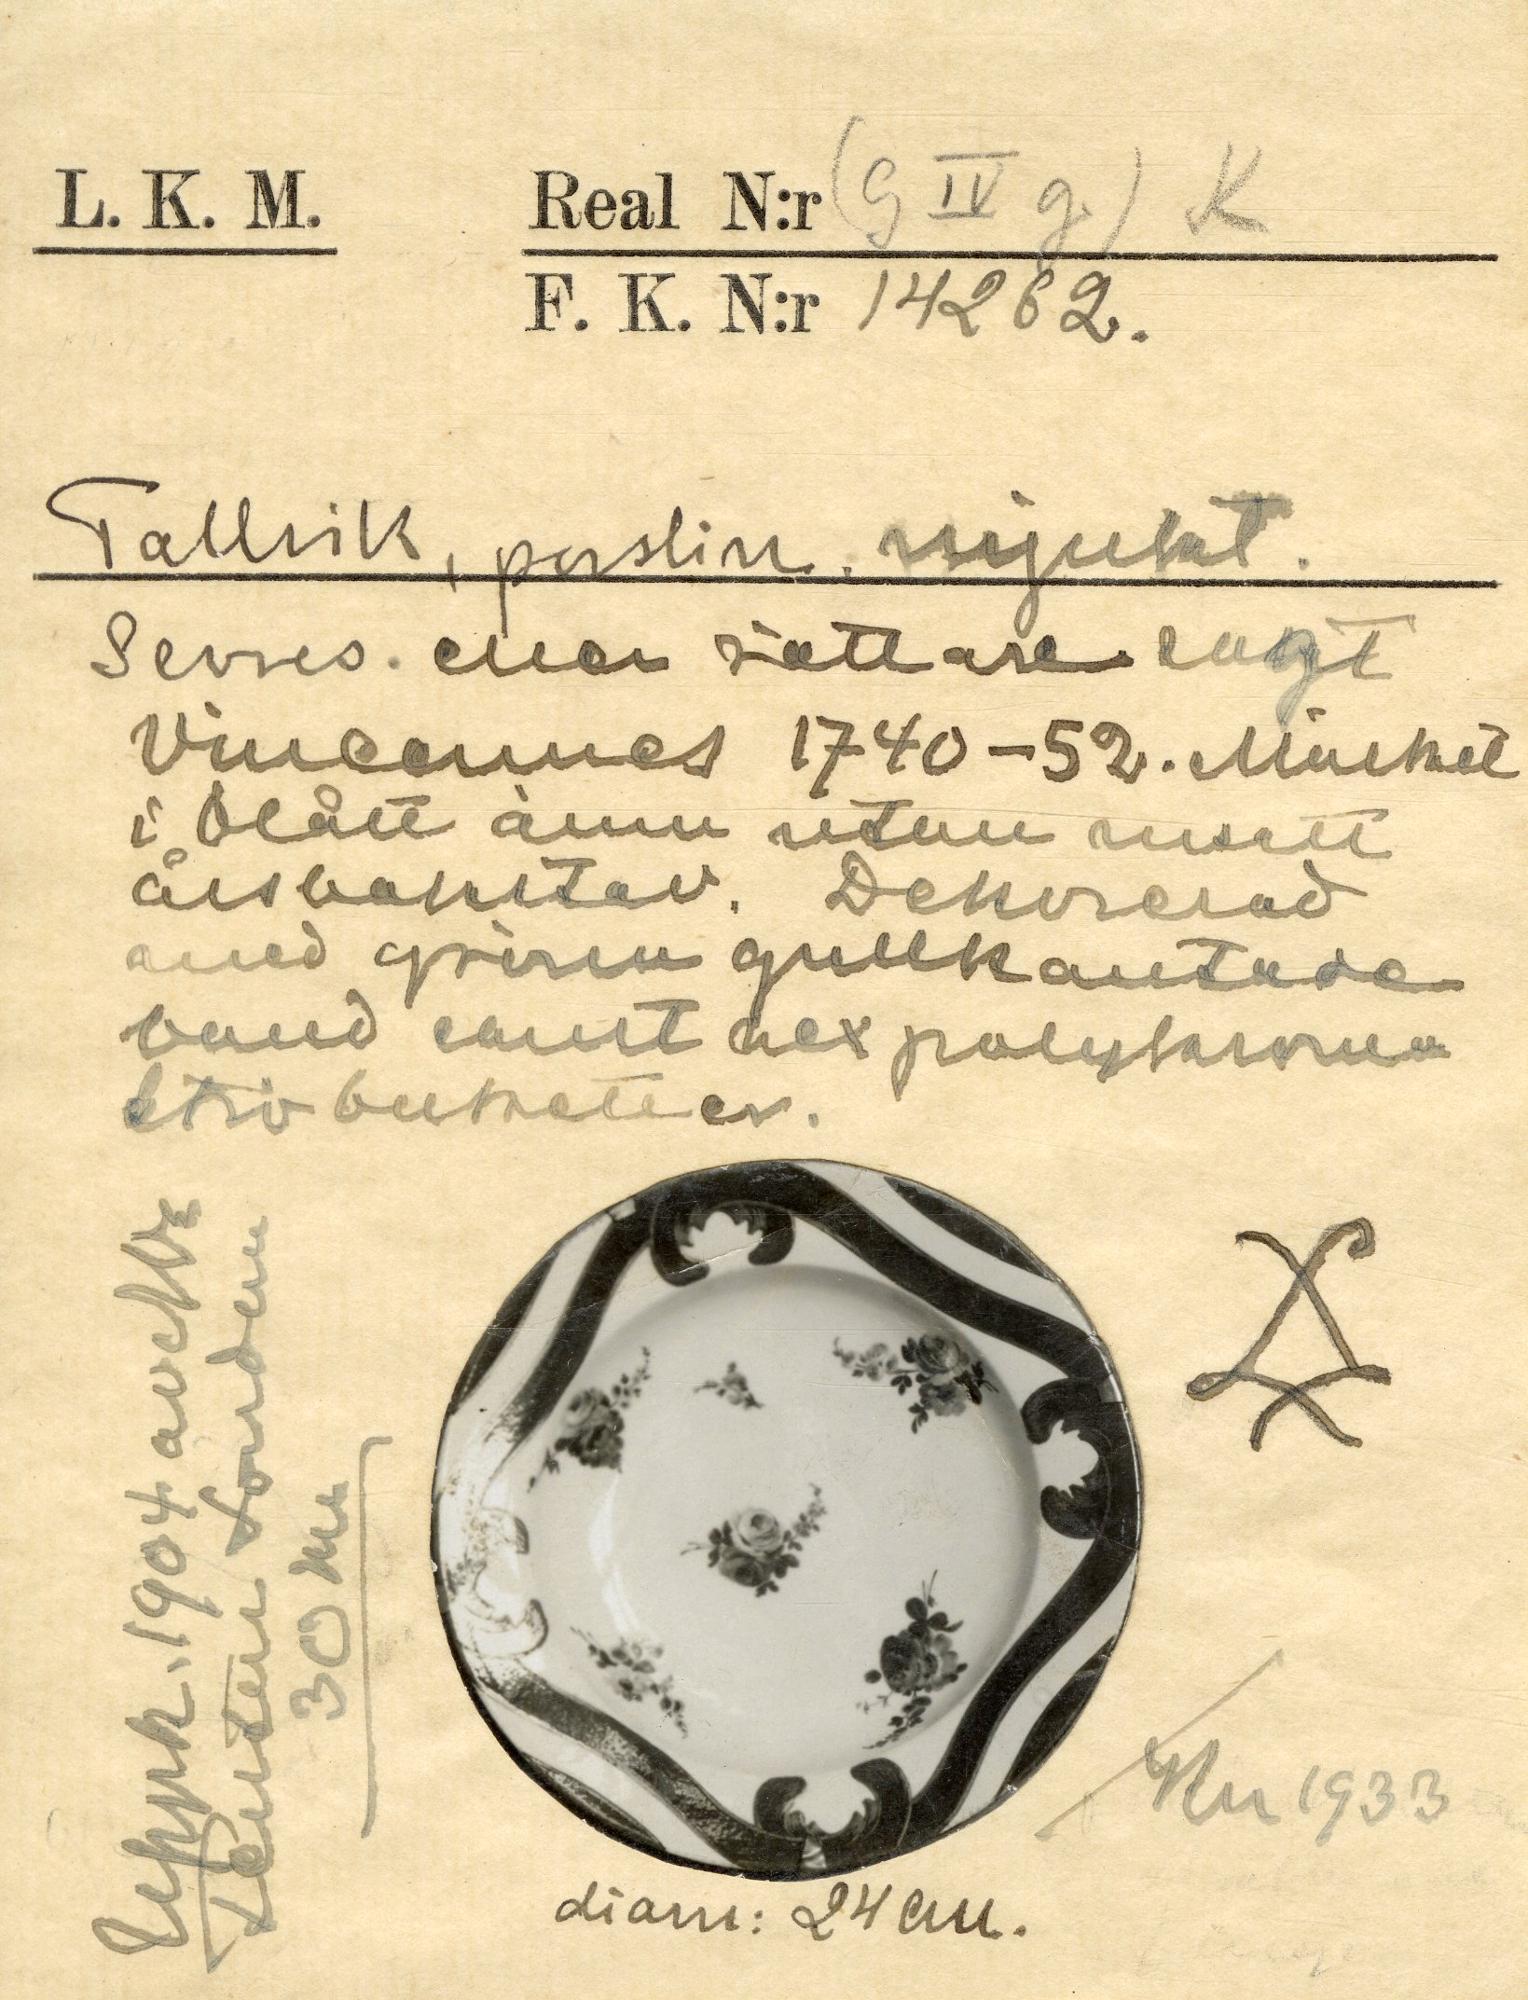 L. K. M.
Real N:r (G IV g.) K
F. K. N:r 14262.
Tallrik, porslin. mjukt.
Sevres. eller rättare sagt
Vincennes 1740-52. Märket
i blått ännu utan insatt
årsbokstav. Dekorerad
med gröna gullkantade
band samt sex polykroma
ströbuketter.
Uppk. 1904 av
London
30
diam: 24 cm.
1933